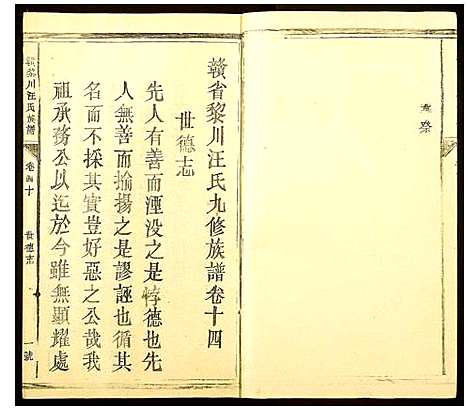 贛省黎川汪氏九修族譜卷十四
世德志
先人有善而湮没之是悖德也先
人無善而揄揚之是謬誣也循其
名而不採其實豈好惡之公哉我
祖承務公以迄於今雖無顯耀處
贛黎川汪氏族譜
世德志
一號